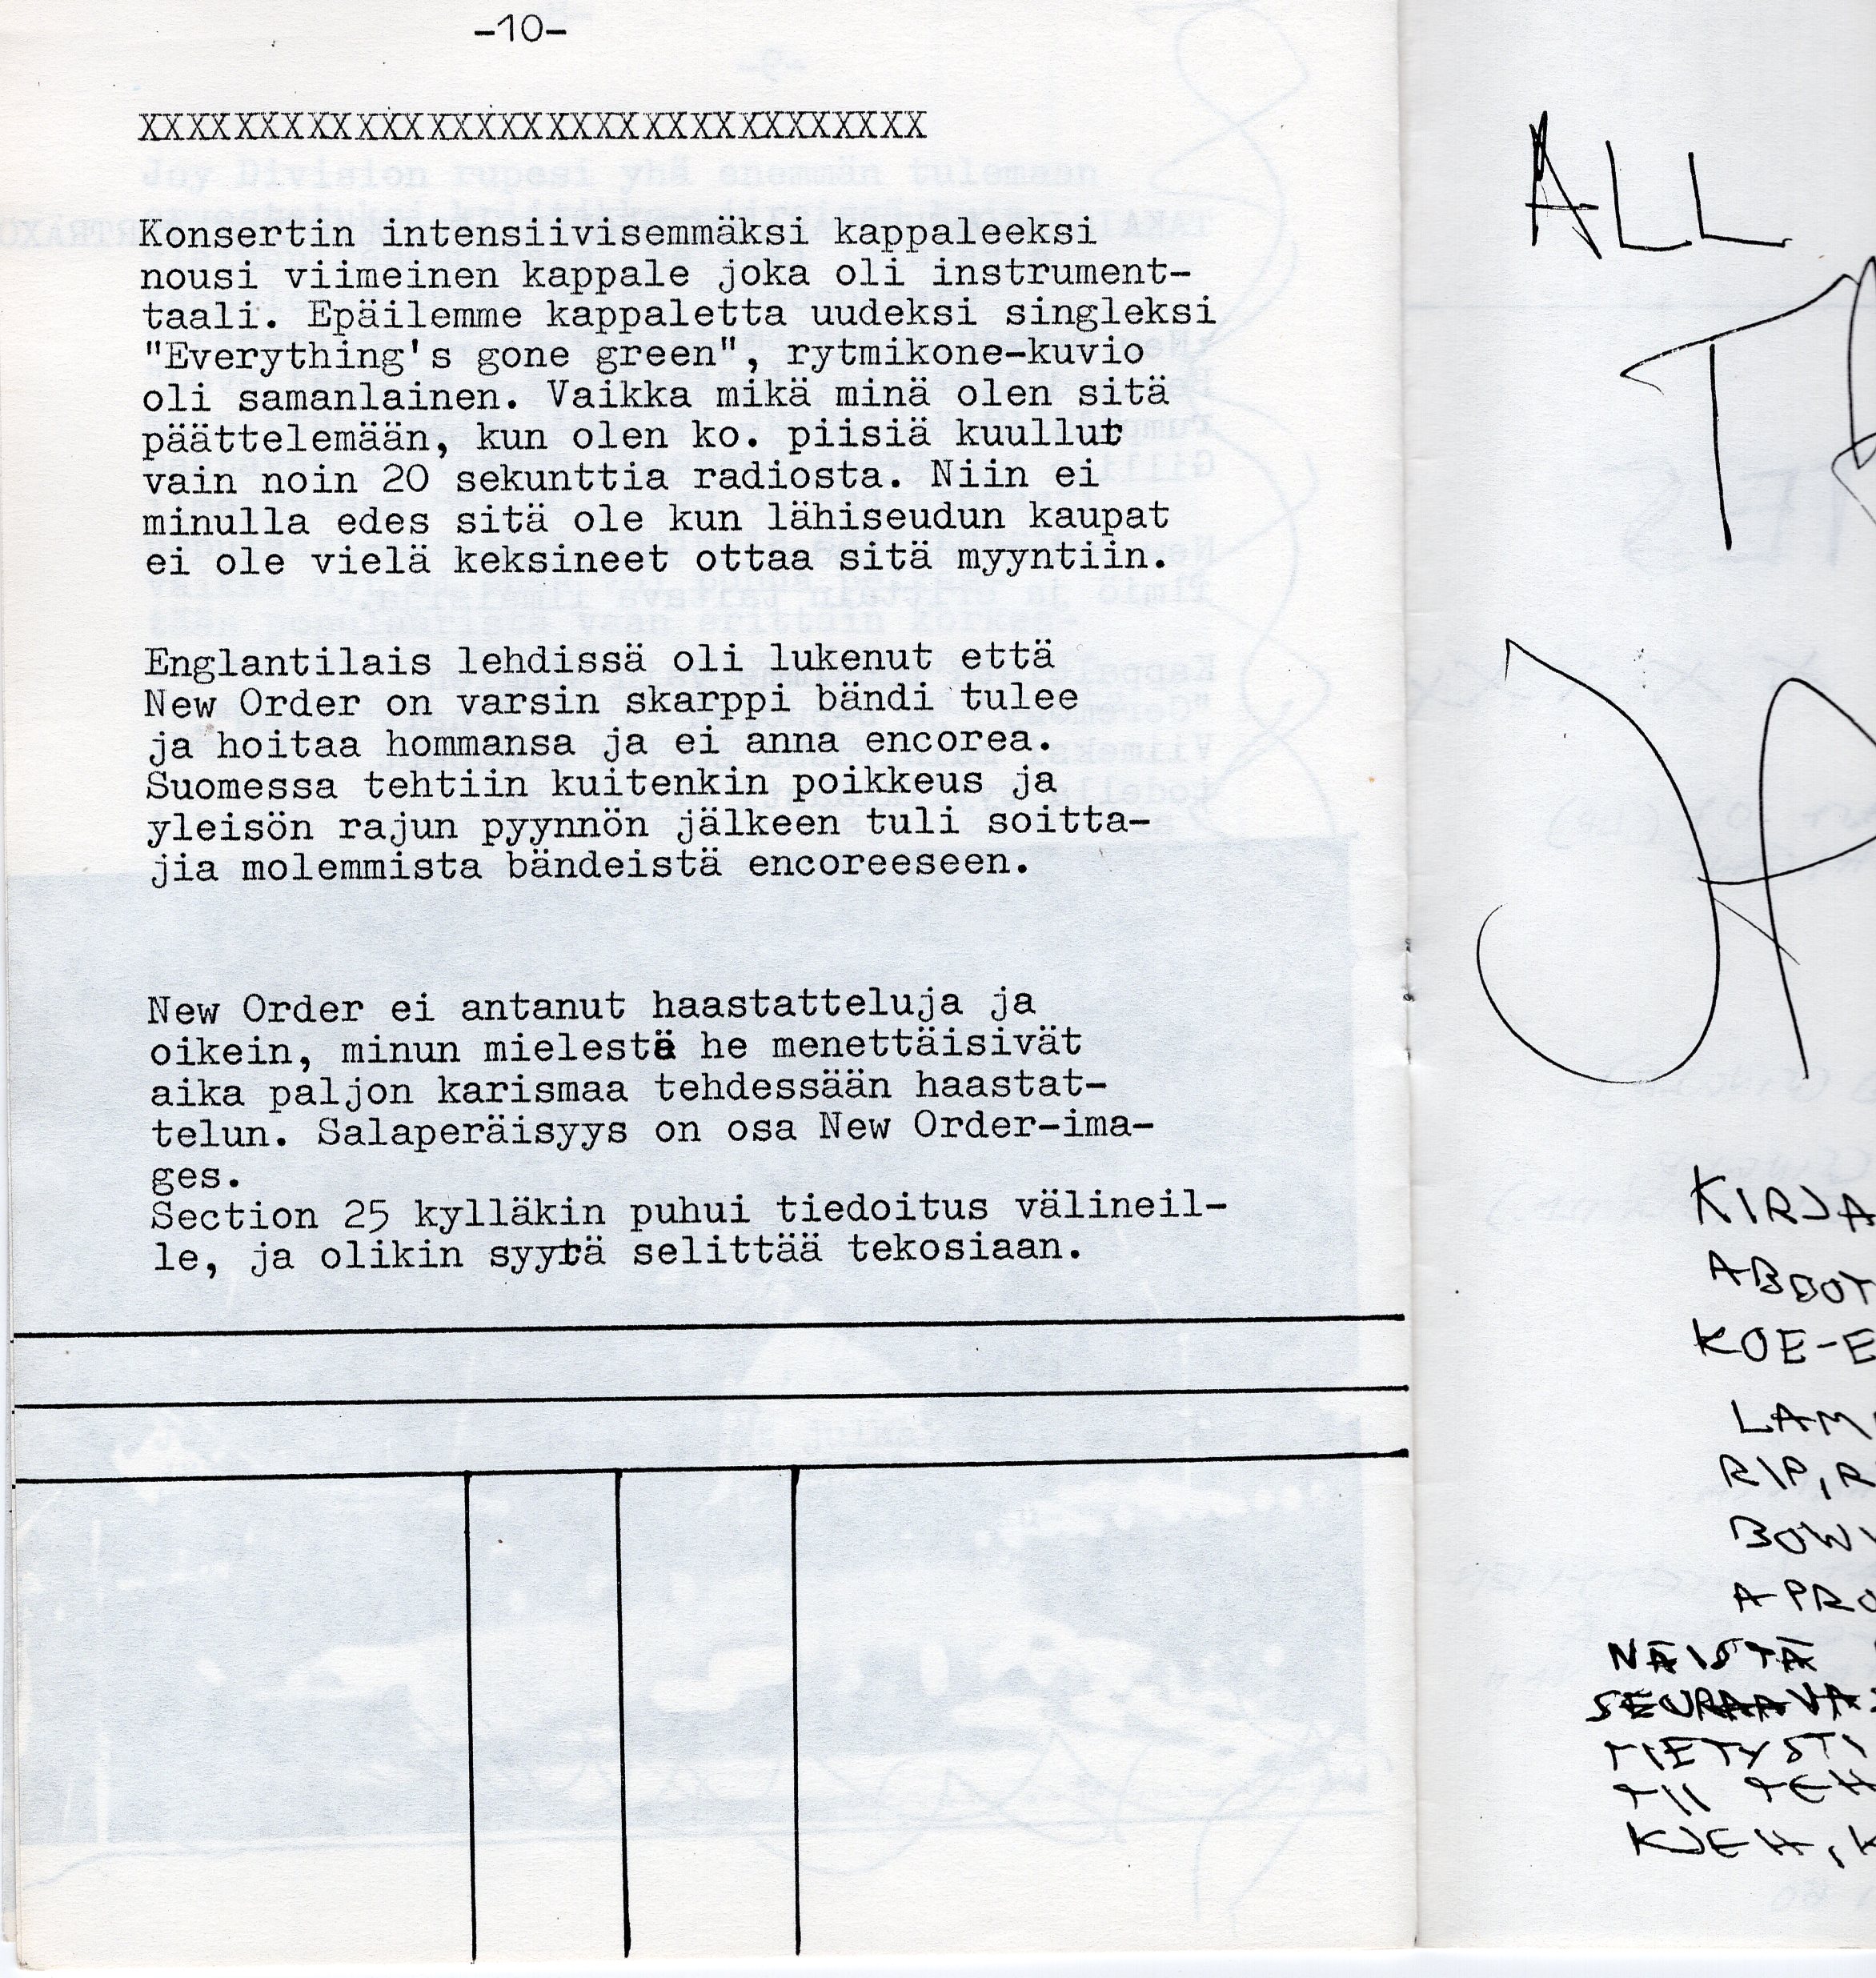 -10-
XXXXXXXXXXXXXXXXXXXXXXXXXXXXXXXXX
Konsertin intensiivisemmäksi kappaleeksi
nousi viimeinen kappale joka oli instrument-
taali. Epäilemme kappaletta uudeksi singleksi
"Everything's gone green", rytmikone-kuvio
oli samanlainen. Vaikka mikä minä olen sitä
päättelemään, kun olen ko. piisiä kuullut
vain noin 20 sekunttia radiosta. Niin ei
minulla edes sitä ole kun lähiseudun kaupat
ei ole vielä keksineet ottaa sitä myyntiin.
Englantilais lehdissä oli lukenut että
New Order on varsin skarppi bändi tulee
ja hoitaa hommansa ja ei anna encorea.
Suomessa tehtiin kuitenkin poikkeus ja
yleisön rajun pyynnön jälkeen tuli soitta-
jia molemmista bändeistä encoreeseen.
New Order ei antanut haastatteluja ja
oikein, minun mielestä he menettäisivät
aika paljon karismaa tehdessään haastat-
telun. Salaperäisyys on osa New Order-ima-
ges.
Section 25 kylläkin puhui tiedoitus välineil-
le, ja olikin syytä selittää tekosiaan.
ALL
KIRJA
ABOOT
KOE-E
LAM
RIP, R
BOW
APRO
NÄISTÄ
SEURAAVA
TIETYSTI
TII TEH
KJEH, K